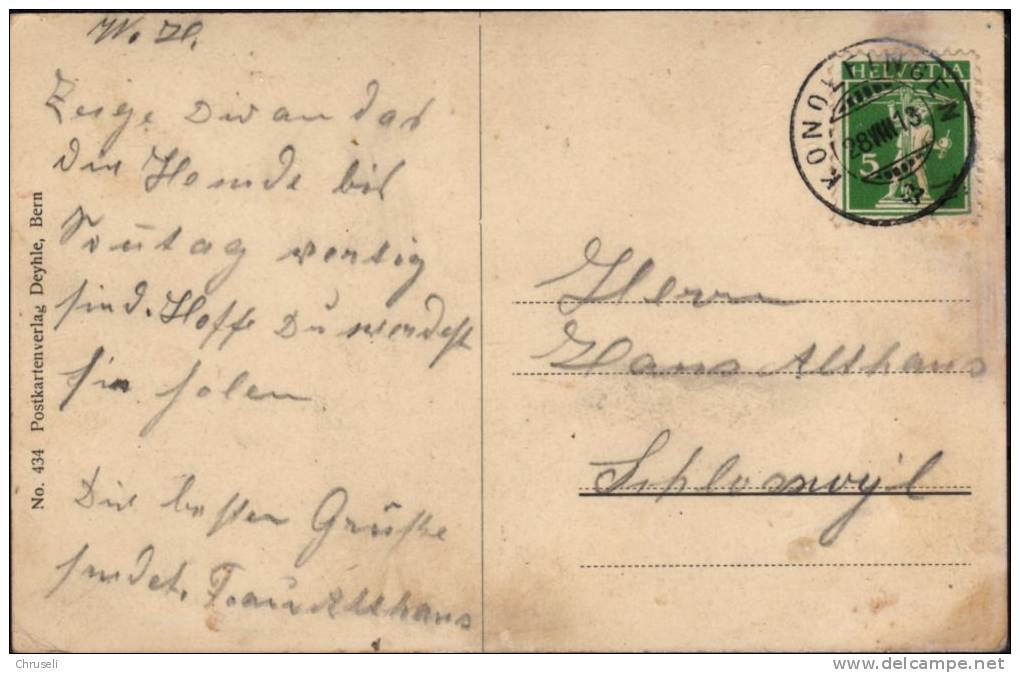 W. H.
Zeige Dir an das
die Hemde bis
Sontag vertig
sind. Hoffe Du werdest
sie holen
Die besten Grüße
sendet. Frau Althaus
No. 434 Postkartenverlag Deyhle, Bern
HELVETIA
5
KONOLFINGEN
28.VIII.13
Herrn
Hans Althaus
Schloswyl
Chruseli
delcampe.net